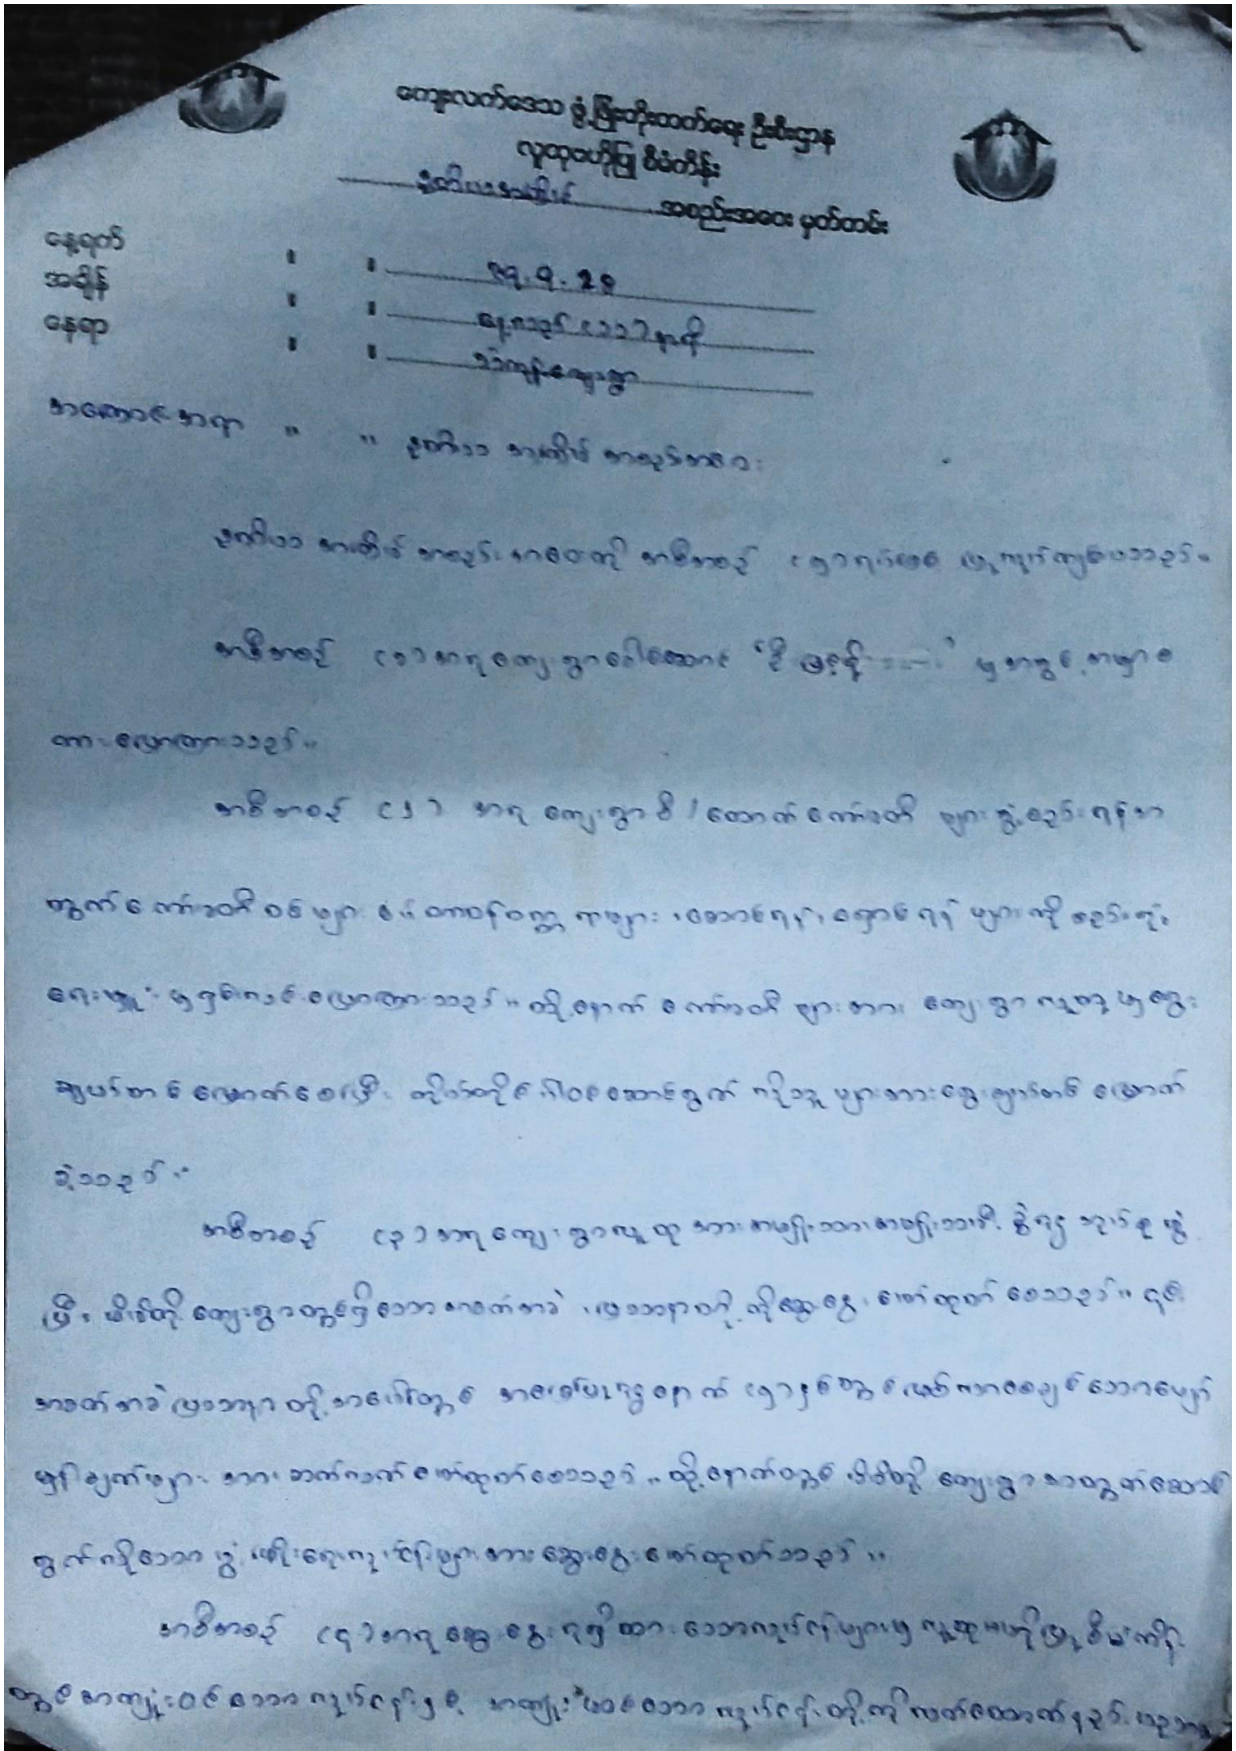 ကျေးလက်ဒေသ ဖွံ့ဖြိုးတိုးတက်ရေး ဦးစီးဌာန
လူထုဗဟိုပြု စီမံကိန်း
ဒုတိယအကြိမ် အစည်းအဝေး မှတ်တမ်း
နေ့ရက် " " ၉.၂၀
အချိန် " " နေ့လည် နာရီ
နေရာ " " ကျေးရွာ
အကြောင်းအရာ " " ဒုတိယ အကြိမ် အစည်းအဝေး
ဒုတိယ အကြိမ် အစည်းအဝေးကို အစီအစဉ် (၅) ရပ်ဖြင့် ပြုလုပ်ကျင်းပသည်။
အစီအစဉ် (၁) အရ ကျေးရွာခေါင်းဆောင် ဦး မှ အဖွင့်အမှာစ
ကား ပြောကြားသည်။
အစီအစဉ် (၂) အရ ကျေးရွာစီ/ထောက်ကော်မတီ များဖွဲ့စည်းရန်အ
တွက် ကော်မတီဝင်များ ၏ တာဝန်ဝတ္တရားများ ၊ ဆောင်ရန်၊ ရှောင်ရန် များကို စည်းရုံး
ရေးမှူး မှ ရှင်းလင်းပြောကြားသည်။ ထို့နောက် ကော်မတီ များအား ကျေးရွာ လူထုမှ ရွေး
ချယ်တင်မြှောက်စေပြီး ကိုယ်တိုင် ပါဝင်ဆောင်ရွက် လိုသူ များအား ရွေးချယ်တင် မြှောက်
ခဲ့သည်။
အစီအစဉ် (၃) အရ ကျေးရွာလူထု အား အမျိုးသား အမျိုးသမီး ခွဲ၍ အုပ်စု ဖွဲ့
ပြီး မိမိတို့ ကျေးရွာတွင်ရှိသော အခက်အခဲ ၊ ပြဿနာတို့ ကိုဆွေးနွေး ဖော်ထုတ် စေသည်။ ၎င်း
အခက်အခဲ ပြဿနာ တို့ အပေါ်တွင် အခြေပြု၍ နောက် (၅) နှစ်တွင် ဖြစ်လာစေချင်သော မျှော်
မှန်းချက်များ အား ဆက်လက် ဖော်ထုတ်စေသည်။ ထို့နောက်တွင် မိမိတို့ ကျေးရွာ အတွက် ဆောင်
ရွက်လိုသော ဖွံ့ဖြိုးရေးလုပ်ငန်းများအား ဆွေးနွေး ဖော်ထုတ်သည်။
အစီအစဉ် (၄) အရ ဆွေးနွေး ရရှိထား သောလုပ်ငန်းများမှ လူထုဗဟိုပြု စီမံကိန်း
တွင် အကျုံးဝင် သော လုပ်ငန်းနှင့် အကျုံးမဝင်သော လုပ်ငန်း တို့ကို